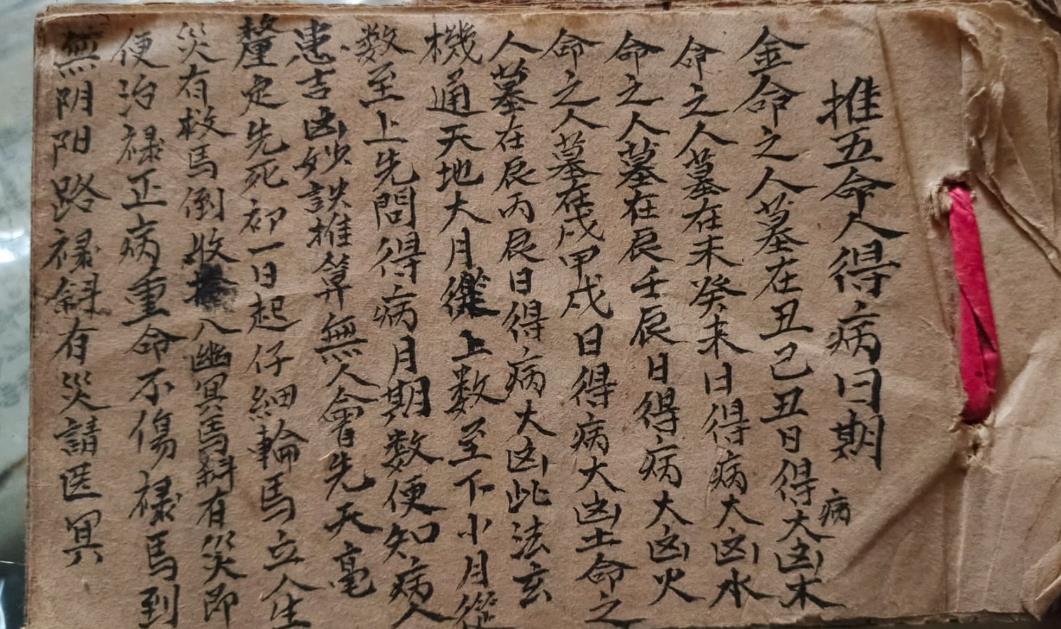 推五命人得病日期
金命之人墓在丑己丑日得病大凶木
命之人墓在未癸未日得病大凶水
命之人墓在辰壬辰日得病大凶火
命之人墓在戌甲戌日得病大凶土命之
人墓在辰丙辰日得病大凶此法玄
機通天地大月從上数至下小月從
数至上先問得病月期数便知病人
患吉凶妙訣推算無人會先天毫
釐定先死初一日起仔細輪馬立人生
災有救馬倒收入幽冥馬斜有災即
便治禄正病重命不傷禄馬到
無阴阳路禄斜有災請医冥